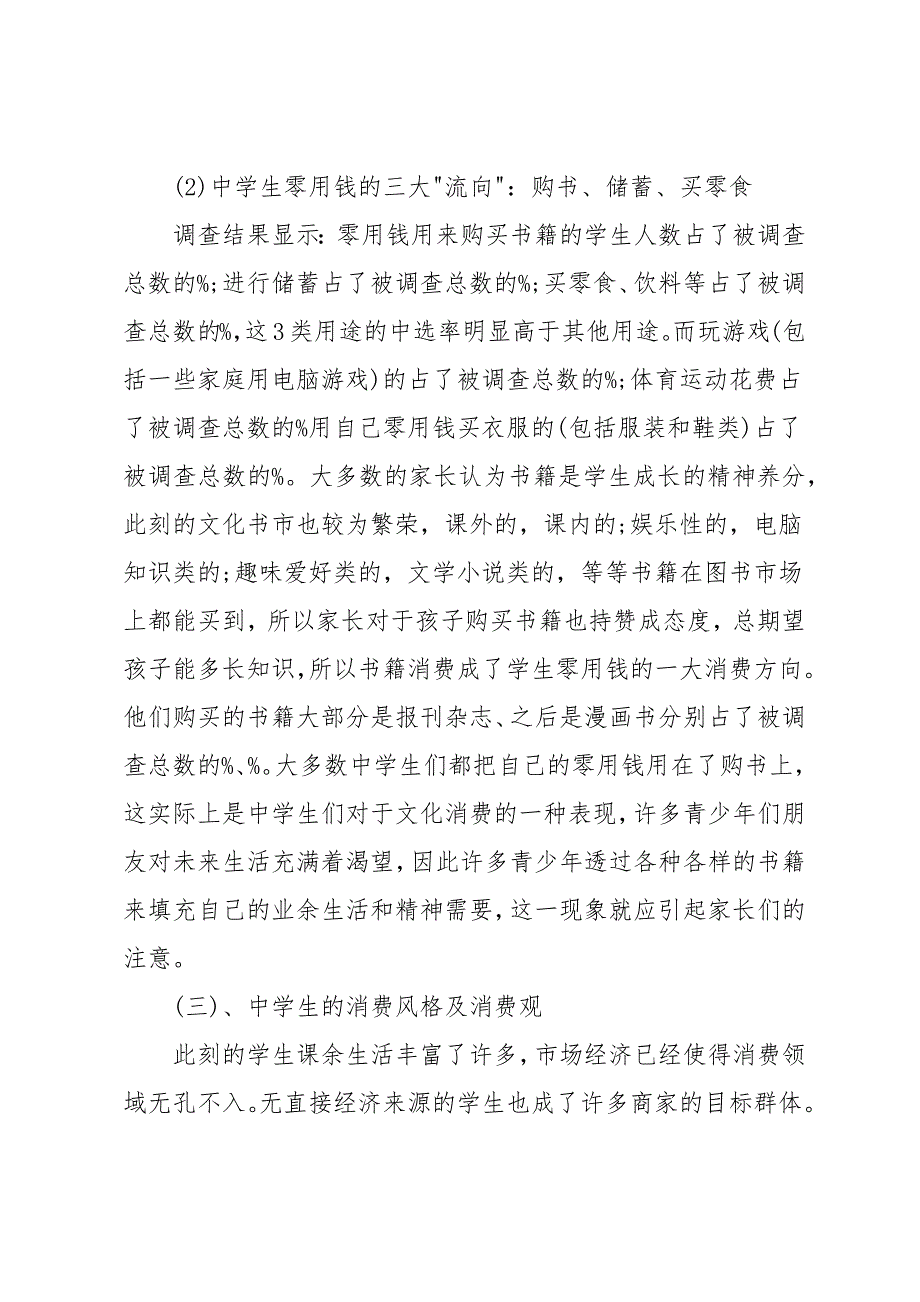 (2)中学生零用钱的三大"流向": 购书、储蓄、买零食
调查结果显示: 零用钱用来购买书籍的学生人数占了被调查
总数的%;进行储蓄占了被调查总数的%;买零食、饮料等占了被调
查总数的%,这3类用途的中选率明显高于其他用途。而玩游戏(包
括一些家庭用电脑游戏)的占了被调查总数的%;体育运动花费占
了被调查总数的%用自己零用钱买衣服的(包括服装和鞋类)占了
被调查总数的%。大多数的家长认为书籍是学生成长的精神养分,
此刻的文化书市也较为繁荣, 课外的, 课内的;娱乐性的, 电脑
知识类的;趣味爱好类的, 文学小说类的, 等等书籍在图书市场
上都能买到, 所以家长对于孩子购买书籍也持赞成态度, 总期望
孩子能多长知识,所以书籍消费成了学生零用钱的一大消费方向。
他们购买的书籍大部分是报刊杂志、之后是漫画书分别占了被调
查总数的%、%。大多数中学生们都把自己的零用钱用在了购书上,
这实际上是中学生们对于文化消费的一种表现, 许多青少年们朋
友对未来生活充满着渴望,因此许多青少年透过各种各样的书籍
来填充自己的业余生活和精神需要, 这一现象就应引起家长们的
注意。
(三)、中学生的消费风格及消费观
此刻的学生课余生活丰富了许多, 市场经济已经使得消费领
域无孔不入。无直接经济来源的学生也成了许多商家的目标群体。